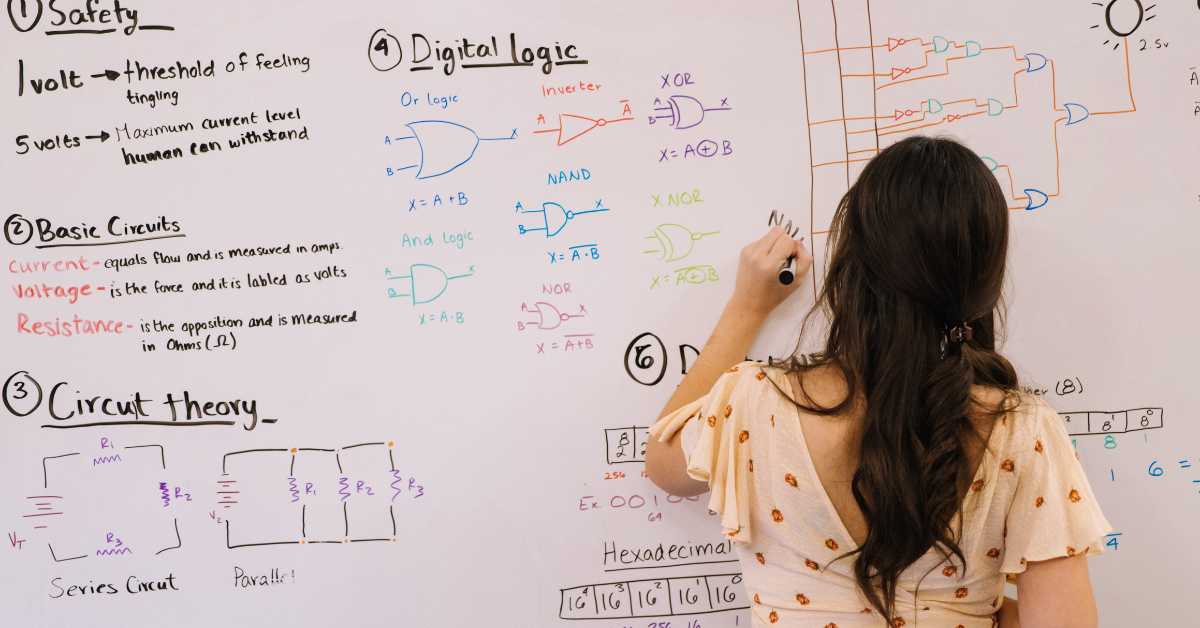 ① Safety
1 volt → threshold of feeling
tingling
5 volts → Maximum current level
human can withstand
② Basic Circuits
Current - equals flow and is measured in amps.
Voltage - is the force and it is labled as volts
Resistance - is the opposition and is measured
in Ohms (Ω)
③ Circuit theory
R1
R2
R3
VT
Series Circut
R1
R2
R3
V2
Parallel
④ Digital logic
Or logic
A
B
X
X = A + B
And logic
A
B
X
X = A·B
Inverter
A
A̅
NAND
A
B
X
X = A̅·̅B̅
NOR
A
B
X
X = A̅+̅B̅
X OR
A
B
X
X = A ⊕ B
X NOR
X = A̅ ̅⊕̅ B̅
2.5v
⑤
(8)
256
8¹ 8⁰
8 1
1 6 =
Ex. 001
64
Hexadecimal
16⁴ 16³ 16² 16¹ 16⁰
256 16 1